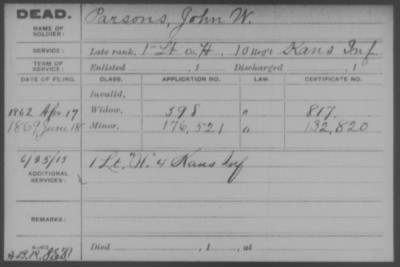 DEAD.
NAME OF SOLDIER: Parsons, John W.
SERVICE: Late rank, 1" Lt Co H, 10 Regt Kans Inf.
TERM OF SERVICE: Enlisted , 1 Discharged , 1
DATE OF FILING. CLASS. APPLICATION NO. LAW. CERTIFICATE NO.
Invalid,
1862 Apr 17 Widow, 598 " 817
1869 June 18 Minor, 176,521 " 132,820
ADDITIONAL SERVICES: 1 Lt. "H." 4 Kans Inf
REMARKS:
Died , 1 , at